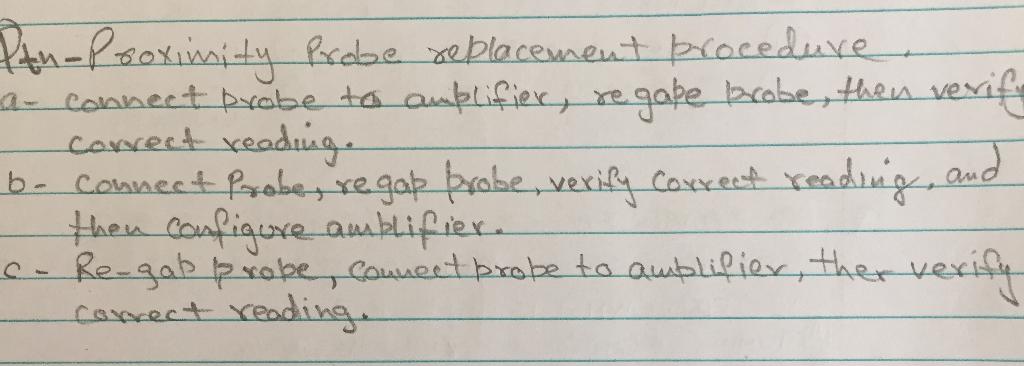 Ptn-Proximity Probe replacement procedure.
a- connect probe to amplifier, re gape probe, then verify
correct reading.
b- connect Probe, re gap probe, verify correct reading, and
then configure amplifier.
c- Re-gap probe, connect probe to amplifier, then verify
correct reading.